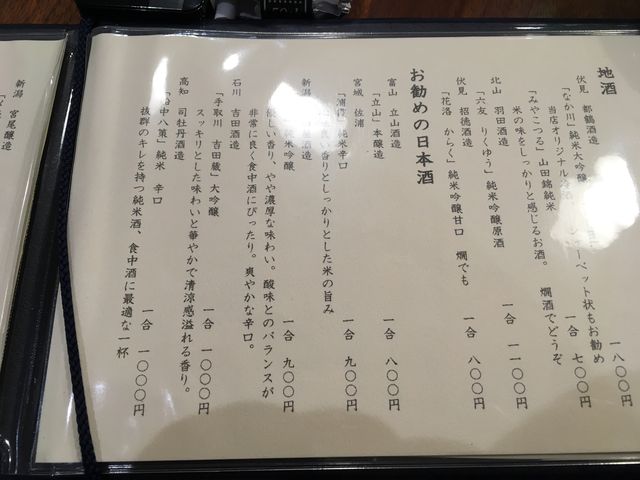 地酒
伏見 都鶴酒造
「なか川」純米大吟醸 ペット状もお勧め 一八〇〇円
当店オリジナル
「みやこつる」山田錦純米 一合 七〇〇円
米の味をしっかりと感じるお酒。 燗酒でどうぞ
北山 羽田酒造
「六友 りくゆう」純米吟醸原酒 一合 一一〇〇円
伏見 招徳酒造
「花洛 からく」純米吟醸甘口 燗でも 一合 八〇〇円
お勧めの日本酒
富山 立山酒造
「立山」本醸造 一合 八〇〇円
宮城 佐浦
純米辛口 一合 九〇〇円
良い香りとしっかりとした米の旨み
新潟 酒造
純米吟醸 一合 九〇〇円
優しい香り、やや濃厚な味わい。酸味とのバランスが
非常に良く食中酒にぴったり。爽やかな辛口。
石川 吉田酒造
「手取川 吉田蔵」大吟醸 一合 一〇〇〇円
スッキリとした味わいと華やかで清涼感溢れる香り。
高知 司牡丹酒造
中八策」純米 辛口 一合 一〇〇〇円
抜群のキレを持つ純米酒、食中酒に最適な一杯
新潟 宮尾醸造